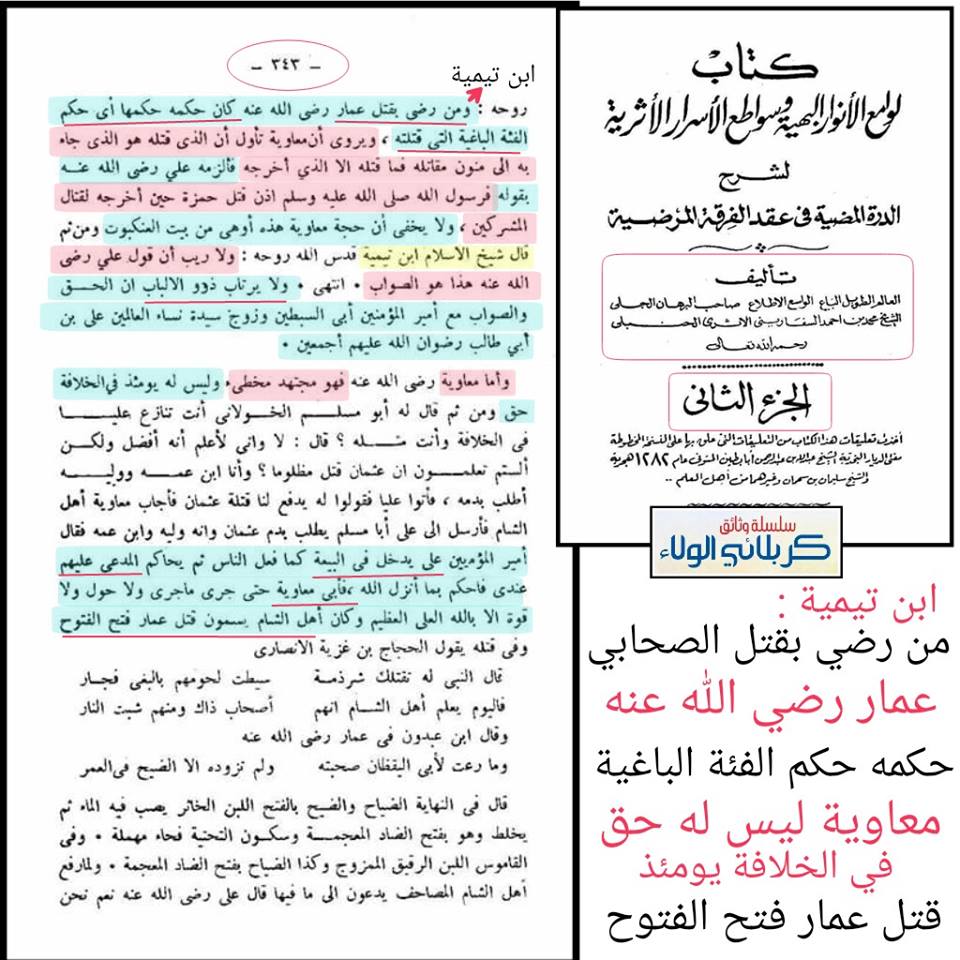 كتاب
لوامع الأنوار البهية وسواطع الأسرار الأثرية
لشرح
الدرة المضية في عقد الفرقة المرضية
تأليف
العالم الطويل الباع الواسع الاطلاع صاحب البرهان الجلى
الشيخ محمد بن احمد السفاريني الاثرى الحنبلى
رحمه الله تعالى
الجزء الثانى
أخذت تعليقات هذا الكتاب من التعليقات التى على النسخة المخطوطة
مفتى الديار النجدية الشيخ عبد الله بن عبد الرحمن أبا بطين المتوفى عام ١٢٨٢ هجرية
والشيخ سليمان بن سحمان وغيرهما من أهل العلم ..
سلسلة وثائق
كربلائي الولاء
ابن تيمية :
من رضي بقتل الصحابي
عمار رضي الله عنه
حكمه حكم الفئة الباغية
معاوية ليس له حق
في الخلافة يومئذ
قتل عمار فتح الفتوح
— ٣٤٣ —
ابن تيمية
روحه : ومن رضى بقتل عمار رضى الله عنه كان حكمه حكمها أى حكم
الفئة الباغية التي قتلته ، ويروى أن معاوية تأول أن الذى قتله هو الذى جاء
به الى منون مقاتله فما قتله الا الذي أخرجه فألزمه علي رضى الله عنه
بقوله فرسول الله صلى الله عليه وسلم إذن قتل حمزة حين أخرجه لقتال
المشركين ، ولا يخفى أن حجة معاوية هذه أوهى من بيت العنكبوت ومن ثم
قال شيخ الاسلام ابن تيمية قدس الله روحه : ولا ريب أن قول علي رضى
الله عنه هذا هو الصواب • انتهى • ولا يرتاب ذوو الالباب ان الحق
والصواب مع أمير المؤمنين أبى السبطين وزوج سيدة نساء العالمين على بن
أبي طالب رضوان الله عليهم أجمعين •
وأما معاوية رضى الله عنه فهو مجتهد مخطىء وليس له يومئذ في الخلافة
حق ومن ثم قال له أبو مسلم الخولانى أنت تنازع عليا
فى الخلافة وأنت مثله ؟ قال : لا وانى لأعلم أنه أفضل ولكن
ألستم تعلمون ان عثمان قتل مظلوما ؟ وأنا ابن عمه ووليه
أطلب بدمه ، فأتوا عليا فقولوا له يدفع لنا قتلة عثمان فأجاب معاوية أهل
الشام فأرسل الى على أبا مسلم يطلب بدم عثمان وانه وليه وابن عمه فقال
أمير المؤمنين على يدخل فى البيعة كما فعل الناس ثم يحاكم المدعى عليهم
عندى فاحكم بما أنزل الله ،فأبى معاوية حتى جرى ماجرى ولا حول ولا
قوة الا بالله العلى العظيم وكان أهل الشام يسمون قتل عمار فتح الفتوح
وفى قتله يقول الحجاج بن غزية الانصارى
قال النبي له تقتلك شرذمة سيطت لحومهم بالبغى فجار
فاليوم يعلم أهل الشام انهم أصحاب ذاك ومنهم شبت النار
وقال ابن عبدون فى عمار رضى الله عنه
وما رعت لأبى اليقظان صحبته ولم تزوده الا الضيح فى العمر
قال في النهاية الضياح والضيح بالفتح اللبن الخاثر يصب فيه الماء ثم
يخلط وهو بفتح الضاد المعجمة وسكون التحتية فحاء مهملة • وفى
القاموس اللبن الرقيق الممزوج وكذا الضياح بفتح الضاد المعجمة • ولما رفع
أهل الشام المصاحف يدعون الى ما فيها قال على رضى الله عنه نعم نحن